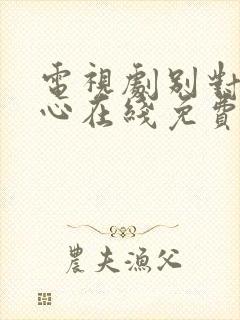 電視劇别對
心在綫免費
農夫漁父